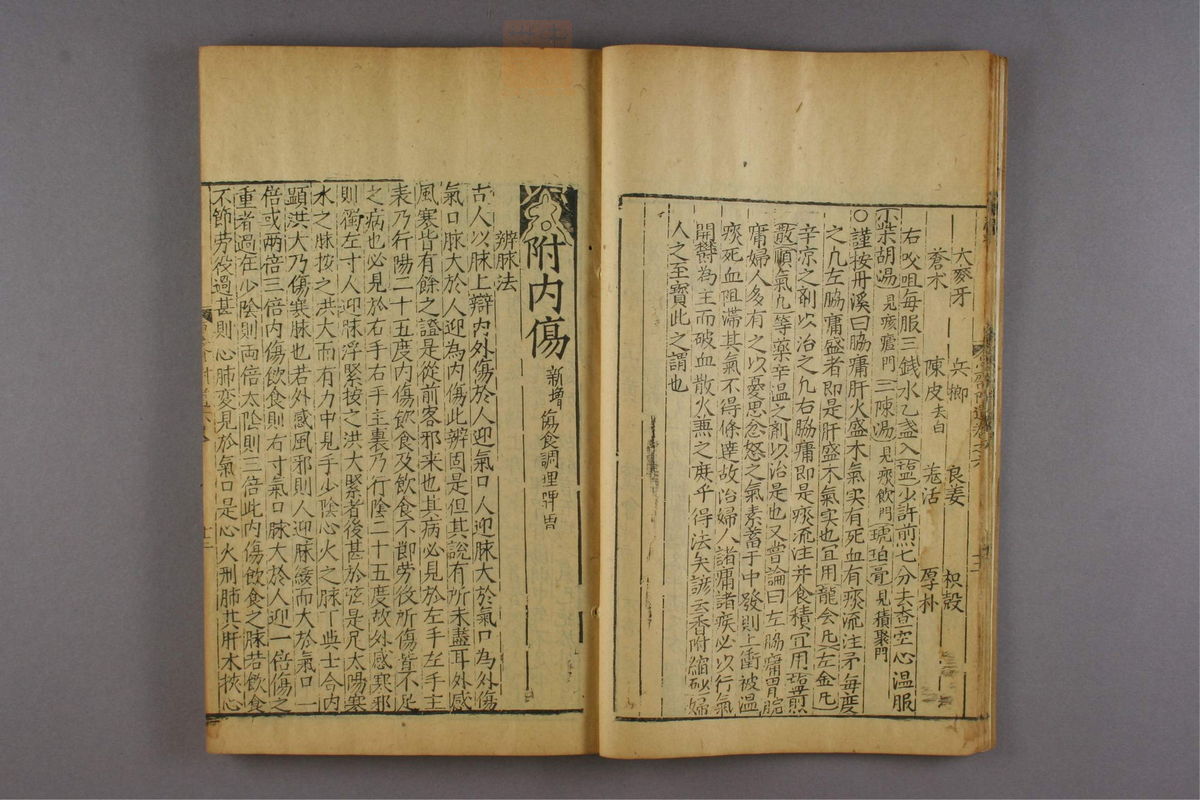 大麥牙 兵郷 良姜 枳殻
蒼术 陳皮去白 羗活 厚朴
右㕮咀每服三錢水乙盞入塩少許煎七分去柤空心温服
小柴胡湯見痎瘧門 二陳湯見痰飲門 琥珀膏見積聚門
○謹按丹溪曰脇痛肝火盛木氣实有死血有痰流注矛每度
之凡左脇痛盛者即是肝盛木氣实也冝用龍会凡左金凡
辛凉之劑以治之凡右脇痛即是痰流注并食積冝用塩煎
散順氣凡等藥辛温之劑以治是也又嘗論曰左脇痛胃脘
痛婦人多有之以憂思忿怒之氣素蓄于中發則上衝被温
痰死血阻滞其氣不得條逹故治婦人諸痛諸疾必以行氣
開欝為主而破血散火兼之庻乎得法矣諺云香附縮砂婦
人之至寳此之謂也
附内傷 新増 傷食調理脾胃
辨脉法
古人以脉上辯内外傷於人迎氣口人迎脉大於氣口為外傷
氣口脉大於人迎為内傷此辨固是但其說有所未盡耳外感
風寒皆有餘之證是從前客邪来也其病必見於左手左手主
表乃行陽二十五度内傷飲食及飲食不節劳役所傷皆不足
之病也必見於右手右手主裏乃行陰二十五度故外感寒邪
則獨左寸人迎脉浮緊按之洪大緊者後甚於弦是足太陽寒
水之脉按之洪大而有力中見手少陰心火之脉丁與壬合内
顕洪大乃傷寒脉也若外感風邪則人迎脉緩而大於氣口一
倍或兩倍三倍内傷飲食則右寸氣口脉大於人迎一倍傷之
重者過在少陰則兩倍太陰則三倍此内傷飲食之脉若飲食
不節劳役過甚則心肺变見於氣口是心火刑肺其肝木挾心